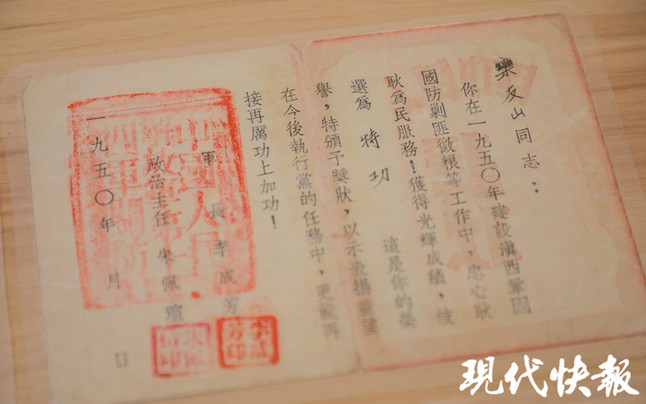 栾友山同志：
你在一九五〇年建設滇西鞏固
國防剿匪徵粮等工作中，忠心耿
耿為民服務！獲得光輝成績，被
選為 特功 這是你的榮
譽，特頒予獎狀，以示表揚並望
在今後執行黨的任務中，更能再
接再厲功上加功！
軍長李成芳
政治主任 朱佩瑄
一九五〇年 月 日
李成芳印
现代快報